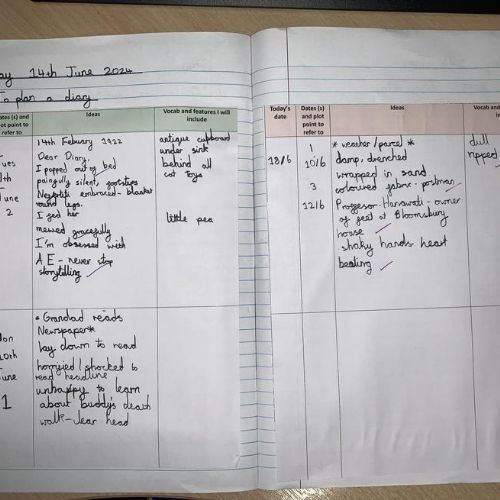 ay 14th June 2024
To plan a diary
Dates (s) and
plot point to
refer to
Ideas
Vocab and features I will
include
ues
th
June
2
14th Febuary 1922
Dear Diary,
I popped out of bed
painfully silent, footsteps
embraced - blanket
round legs.
I feed her
mewed gracefully
I'm obsessed with
A E - never stop
storytelling
antique cupboard
under sink
behind old
cot Toys
little pea
on
10th
June
1
* Grandad reads
Newspaper*
lay down to read
horrified / shocked to
read headline
unhappy to learn
about buddy's death
walk - clear head
Today's
date
Dates (s)
and plot
point to
refer to
Ideas
Vocab
in
18/6
1
10/6
3
12/6
* weather / parcel *
damp, drenched
wrapped in sand
coloured fabric - postman
Proggessor Hanawati - owner
of feed at Bloomsbury
house
shaky hands heart
beating
dull
ripped